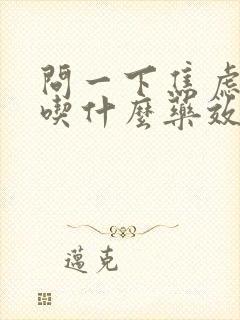 問一下焦慮
喫什麼藥效
邁克